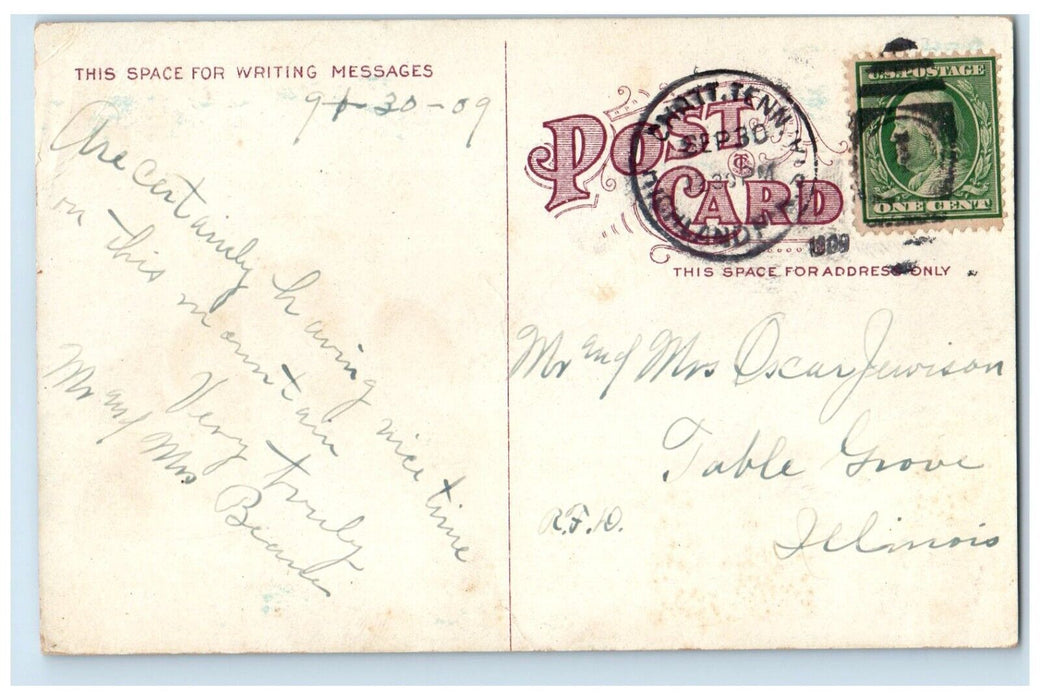 THIS SPACE FOR WRITING MESSAGES
9-30-09
Are certainly having nice time
on this mountain
Very truly
Mr and Mrs
POST CARD
CHATT. TENN.
SEP 30
30 PM
1909
U.S. POSTAGE
ONE CENT
THIS SPACE FOR ADDRESS ONLY
Mr and Mrs Oscar Jewison
Table Grove
R.F.D.
Illinois